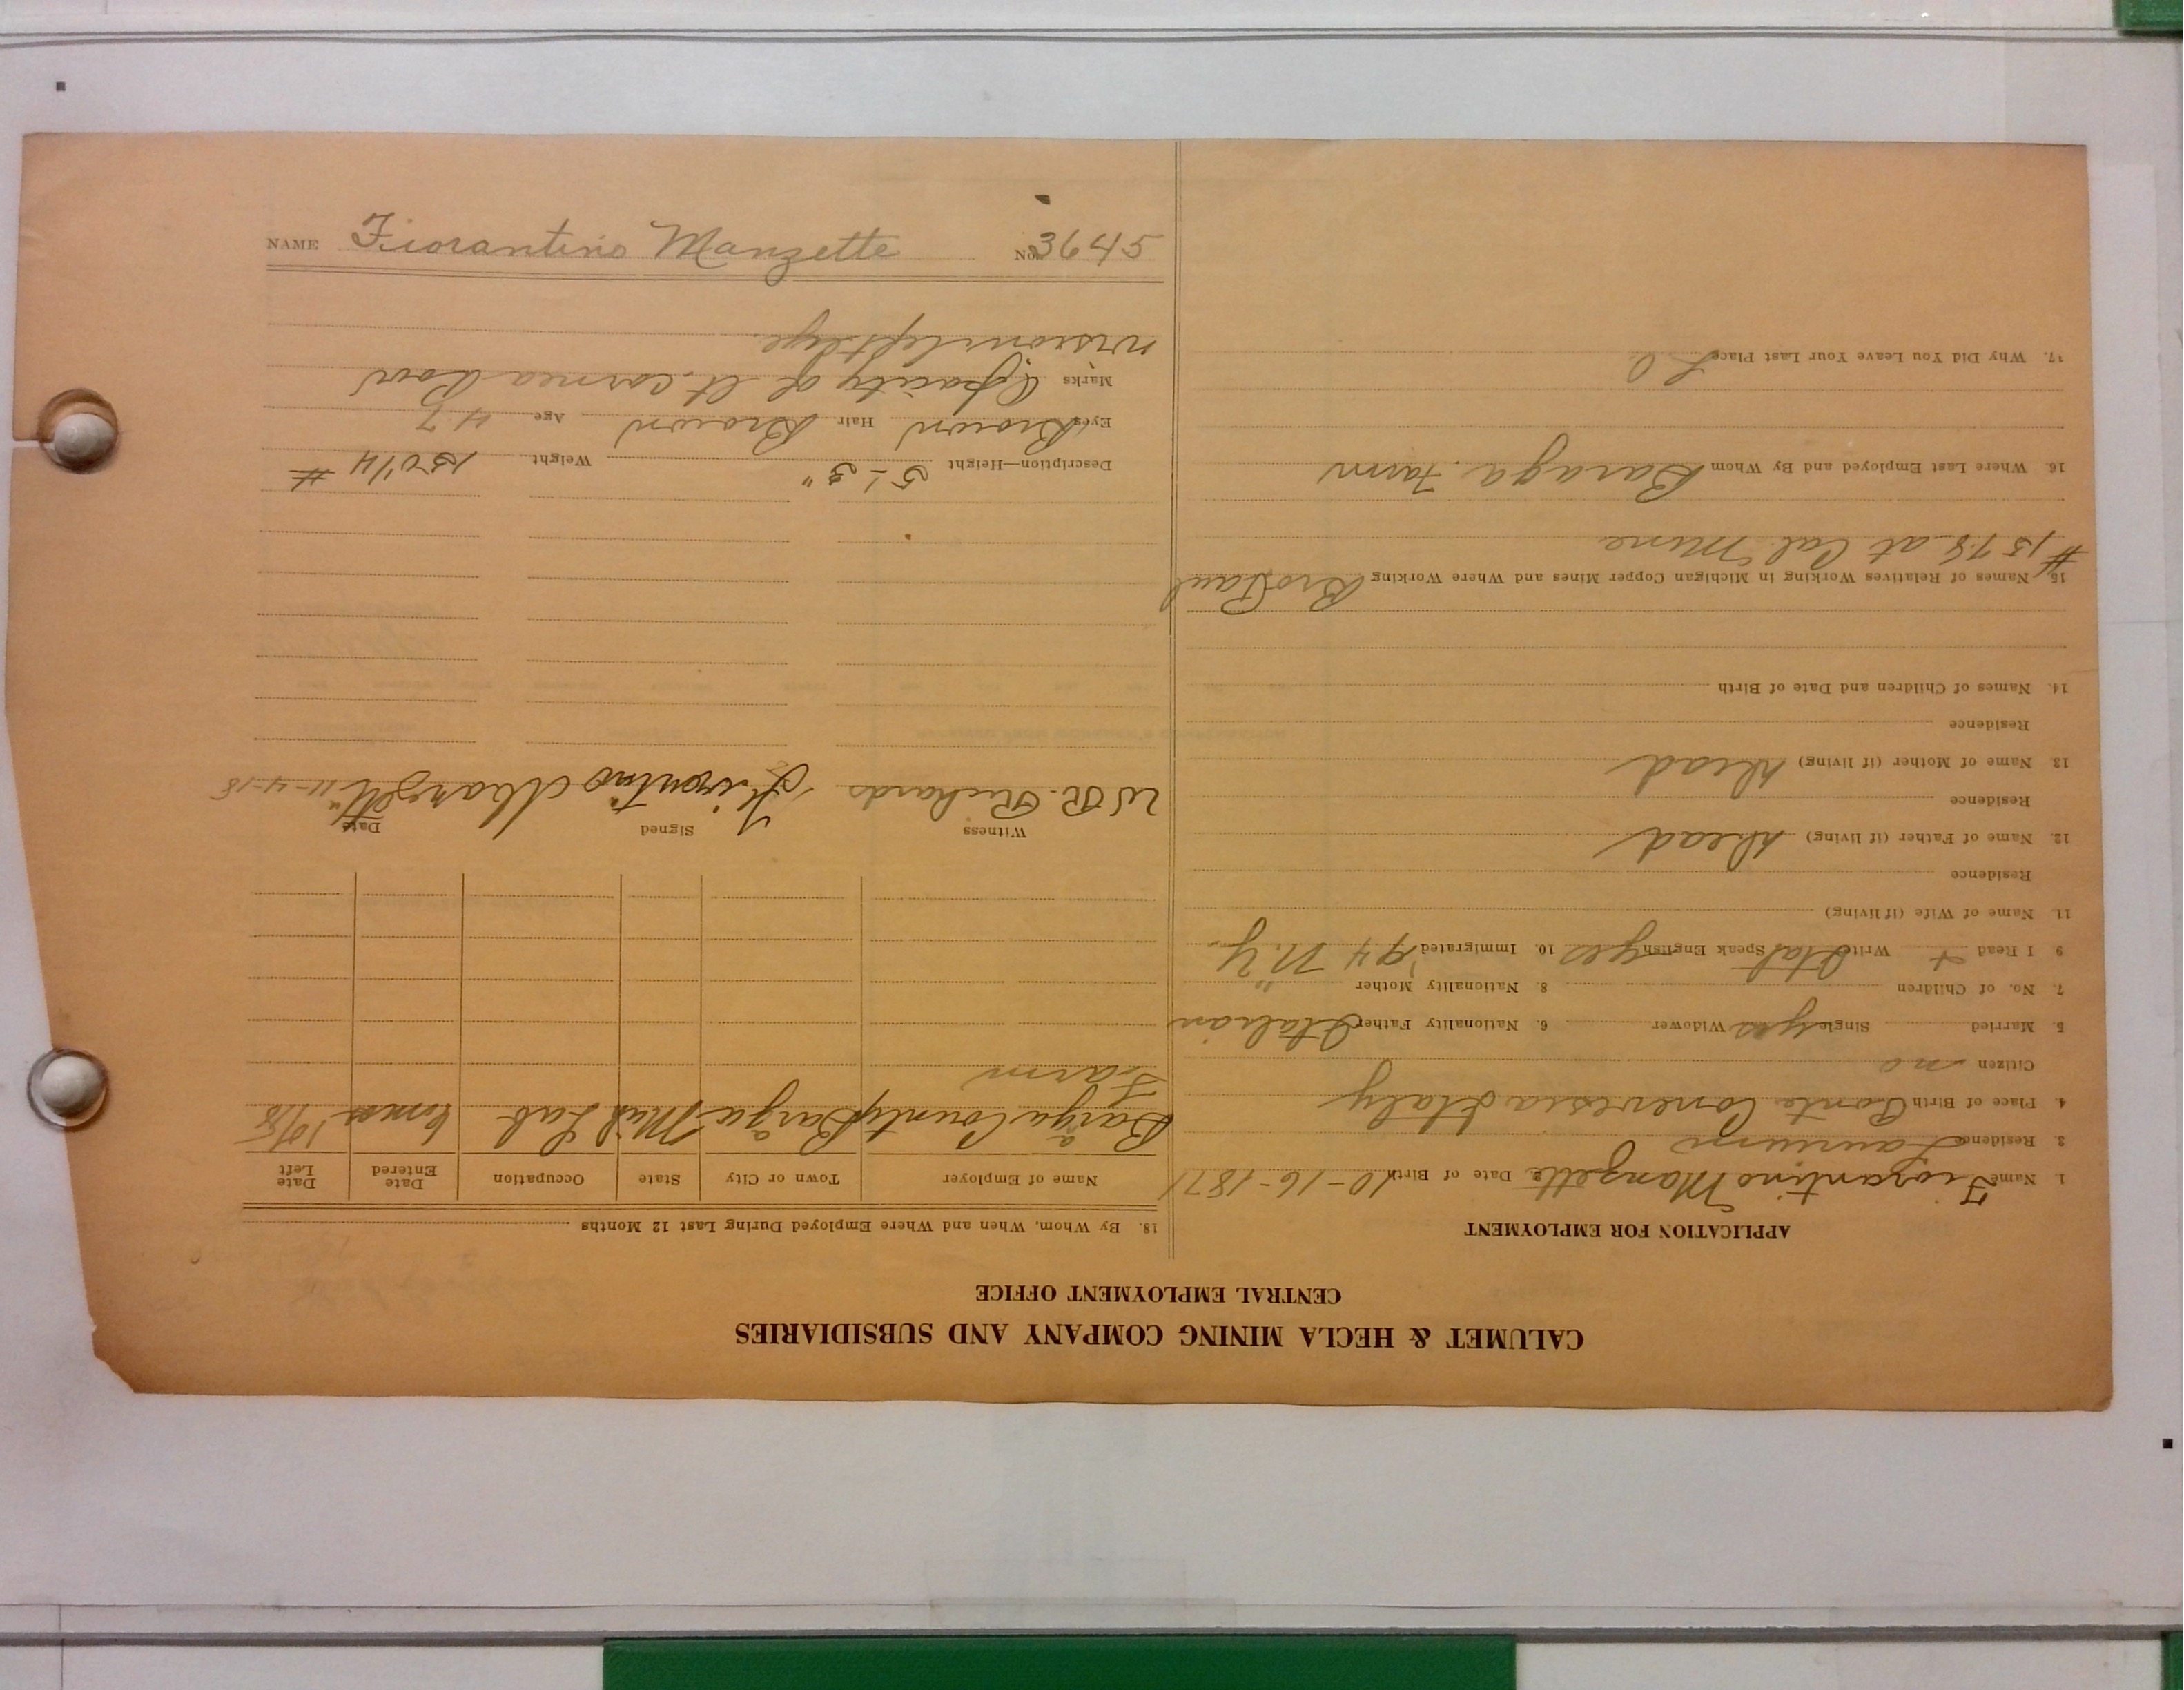 CALUMET & HECLA MINING COMPANY AND SUBSIDIARIES
CENTRAL EMPLOYMENT OFFICE
APPLICATION FOR EMPLOYMENT
1. Name Fiorantino Manzette Date of Birth 10-16-1871
3. Residence Laurium
4. Place of Birth Ponte Italy
Citizen no
5. Married Single yes Widower 6. Nationality Father Italian
7. No. of Children 8. Nationality Mother "
9 I Read + Write Ital Speak English yes 10. Immigrated '94 N.Y.
11. Name of Wife (if living)
Residence
12. Name of Father (if living) Dead
Residence
13. Name of Mother (if living) Dead
Residence
14. Names of Children and Date of Birth
15. Names of Relatives Working in Michigan Copper Mines and Where Working Bro Paul
#1578 at Cal. Mine
16. Where Last Employed and By Whom Baraga Farm
17. Why Did You Leave Your Last Place
18. By Whom, When and Where Employed During Last 12 Months
Name of Employer Town or City State Occupation Date Entered Date Left
Barga County Barga Mich Lab 6 mos 10/18
Farm
Witness Signed Date
W R. Richards Fiorontino Manzette 11-4-18
Description—Height 5'-3" Weight 150 1/4 #
Eyes Brown Hair Brown Age 47
Marks Opacity of lt. cornea Poor
vision left eye.
NAME Fiorantino Manzette No. 3645